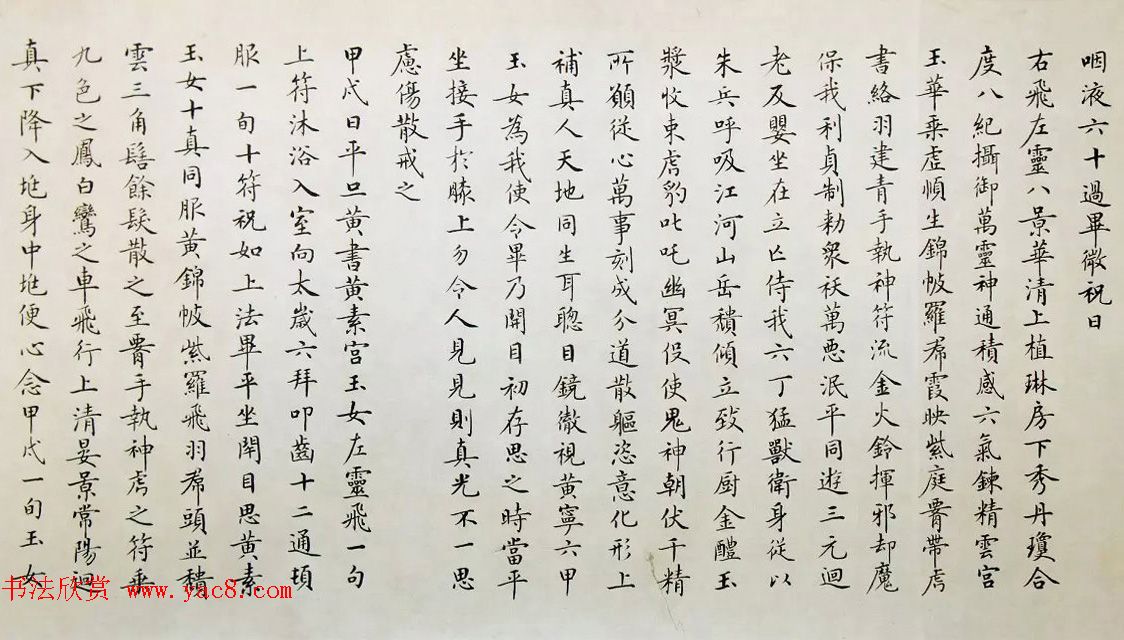 咽液六十過畢微祝曰
右飛左靈八景華清上植琳房下秀丹瓊合
度八紀攝御萬靈神通積感六氣鍊精雲宮
玉華乗虛順生錦帔羅帬霞映紫庭腰帶虎
書絡羽建青手執神符流金火鈴揮邪却魔
保我利貞制勑衆祅萬惡泯平同遊三元迴
老反嬰坐在立亡侍我六丁猛獸衛身從以
朱兵呼吸江河山岳穨傾立致行厨金醴玉
漿收束虎豹叱吒幽冥役使鬼神朝伏千精
所願從心萬事刻成分道散軀恣意化形上
補真人天地同生耳聰目鏡徹視黄寧六甲
玉女為我使令畢乃開目初存思之時當平
坐接手於膝上勿令人見見則真光不一思
慮傷散戒之
甲戌日平旦黄書黄素宫玉女左靈飛一旬
上符沐浴入室向太歲六拜叩齒十二通頓
服一旬十符祝如上法畢平坐閉目思黄素
玉女十真同服黄錦帔紫羅飛羽帬頭並積
雲三角髻餘髮散之至腰手執神虎之符乗
九色之鳳白鸞之車飛行上清晏景常陽迴
真下降入埊身中埊便心念甲戌一旬玉女
书法欣赏 www.yac8.com